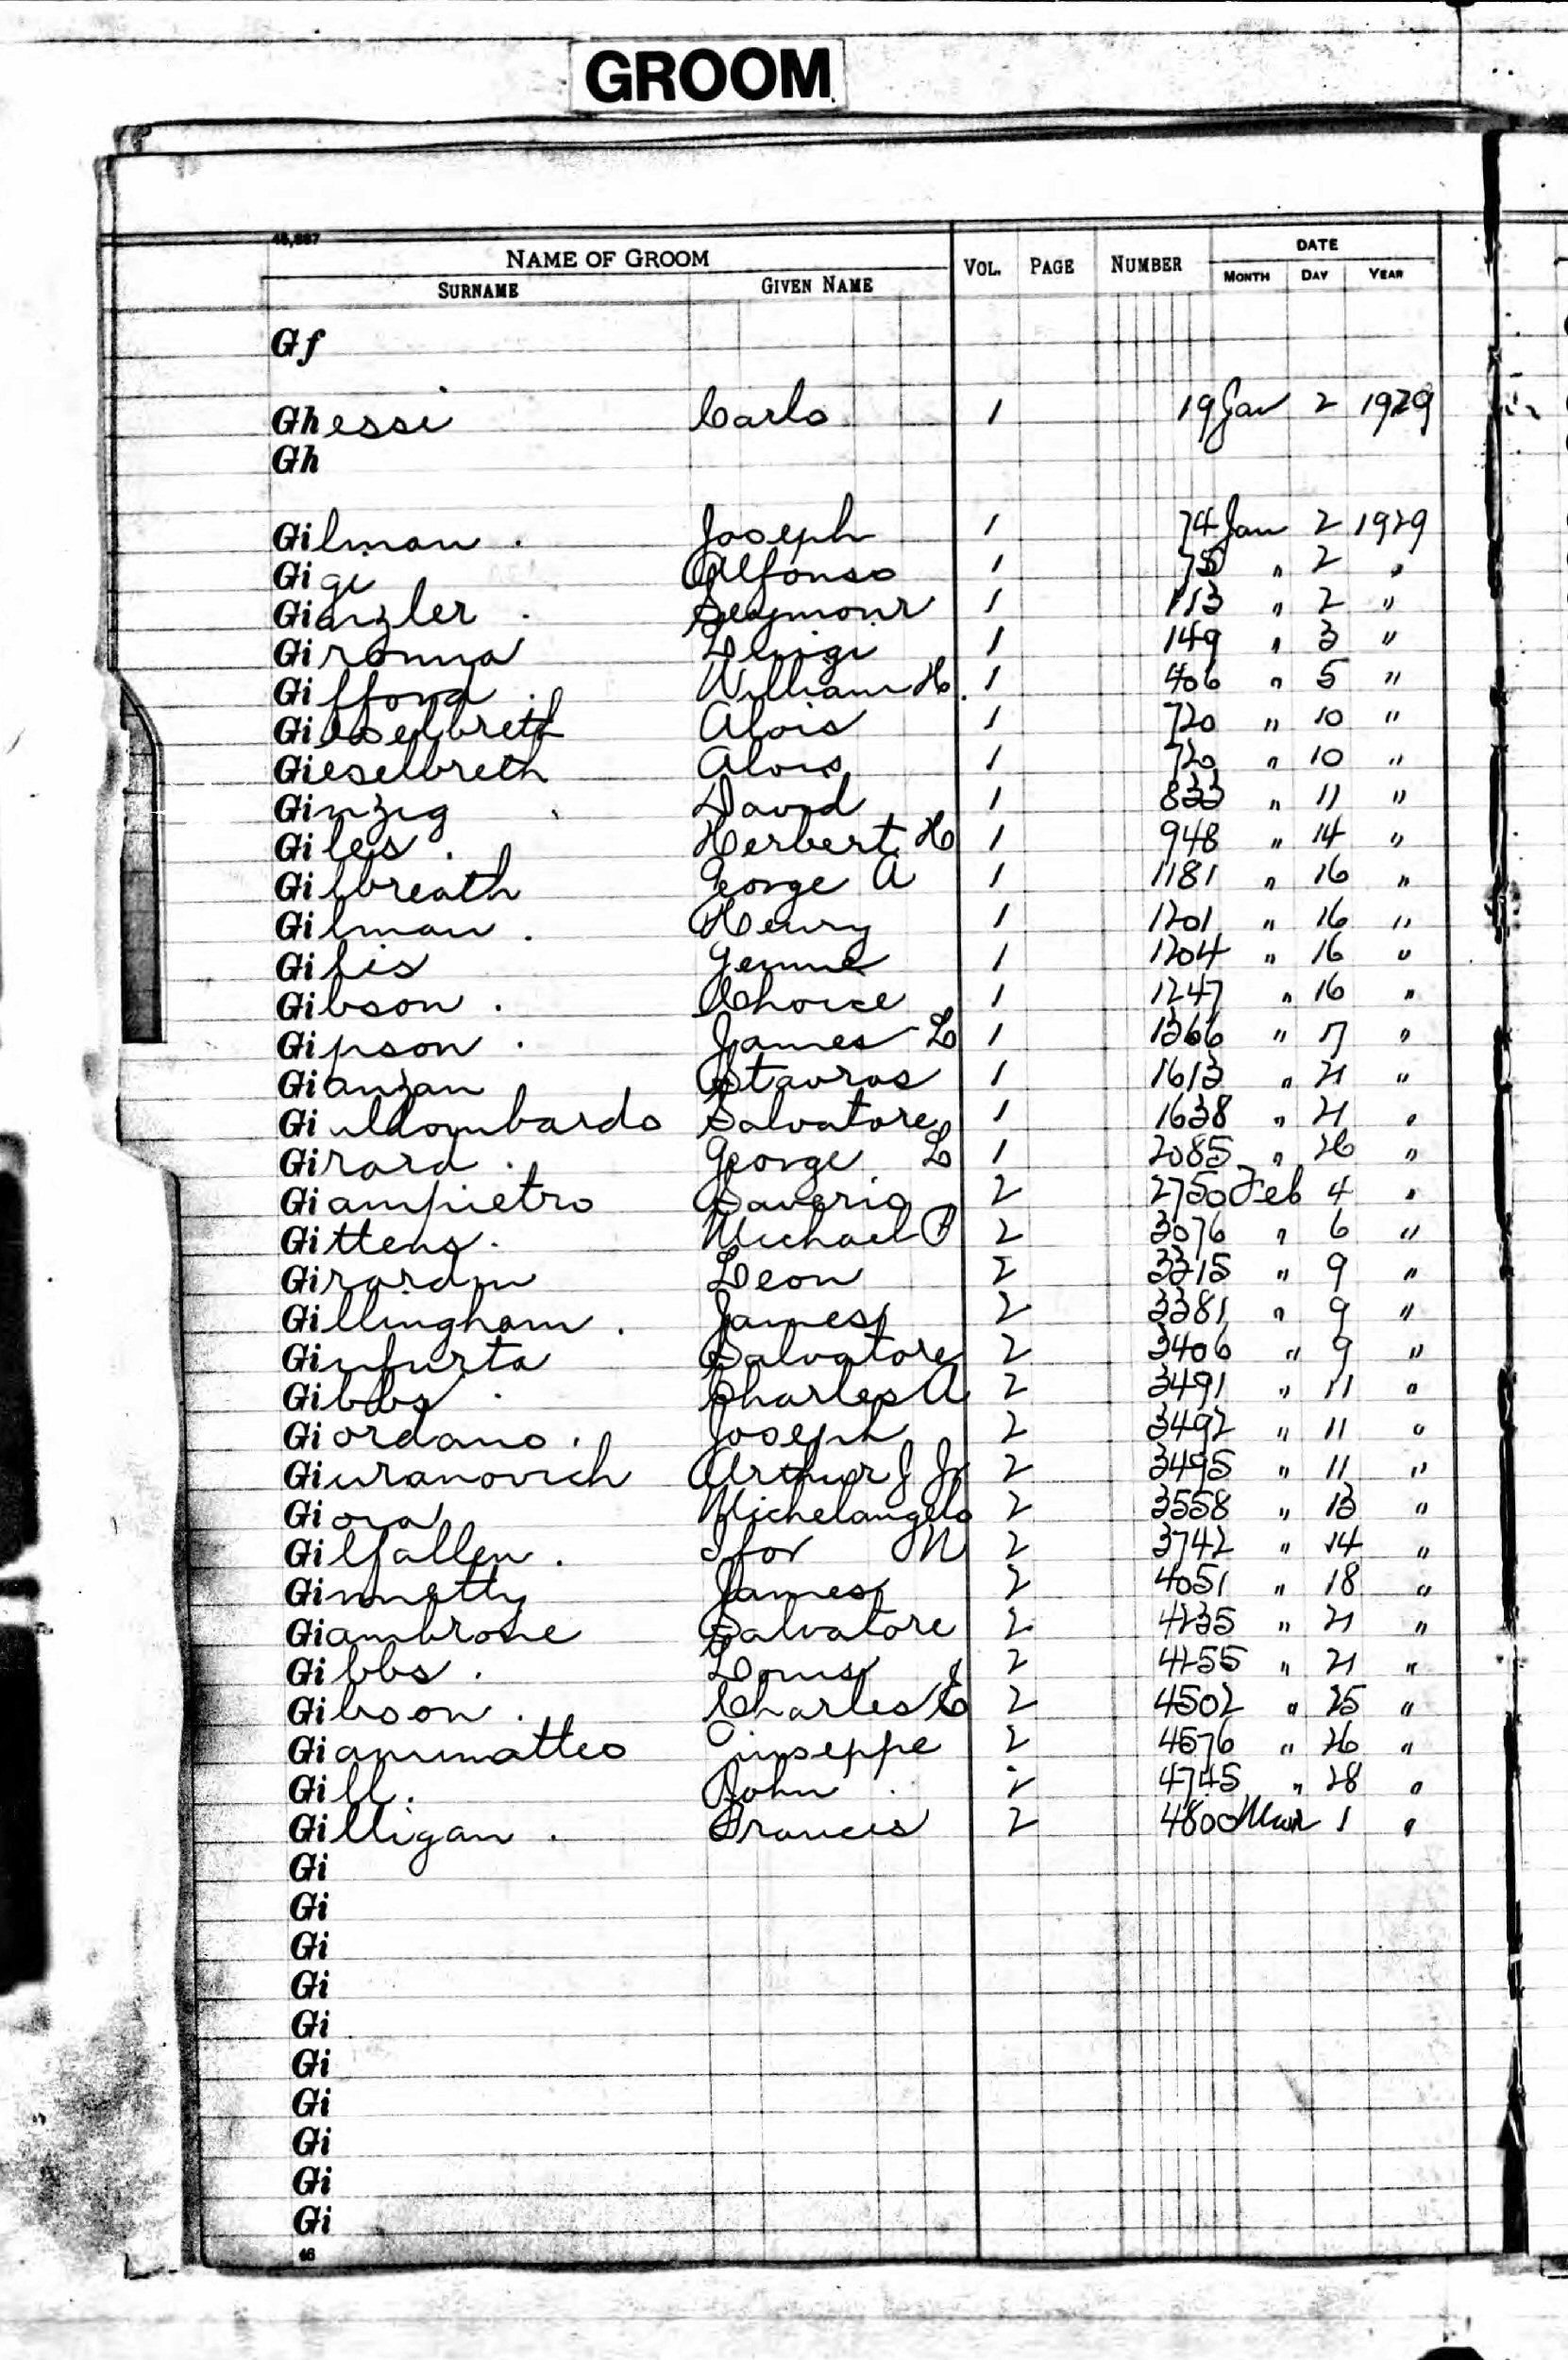 GROOM
NAME OF GROOM VOL. PAGE NUMBER DATE
SURNAME GIVEN NAME MONTH DAY YEAR
Gf
Ghessi Carlo 1 19 Jan 2 1929
Gh
Gilman . Joseph 1 74 Jan 2 1929
Gigi Alfonso 1 75 " 2 "
Gianzler . Seymour 1 113 " 2 "
Gironna Luigi 1 149 " 3 "
Gifford . William H. 1 406 " 5 "
Alois 1 720 " 10 "
Gieselbreth Alois 1 720 " 10 "
Ginzig David 1 833 " 11 "
Giles . Herbert H 1 948 " 14 "
Gilbreath George A 1 1181 " 16 "
Gilman . Henry 1 1201 " 16 "
1 1204 " 16 "
Gibson . Choice 1 1247 " 16 "
Gipson . James L 1 1366 " 17 "
Gianzan Stavros 1 1613 " 21 "
Giullombardo Salvatore 1 1638 " 21 "
Girard . George L 1 2085 " 26 "
Giampietro Saverio 2 2750 Feb 4 "
Gittens . Michael P 2 3076 " 6 "
Girardin Leon 2 3315 " 9 "
Gillingham . James 2 3381 " 9 "
Giufurta Salvatore 2 3406 " 9 "
Gibbs . Charles A 2 3491 " 11 "
Giordano . Joseph 2 3492 " 11 "
Giuranovich Arthur J Jr 2 3495 " 11 "
Michelangelo 2 3558 " 13 "
Gilfallen . Ifor N 2 3742 " 14 "
Ginnetty James 2 4051 " 18 "
Giambrone Salvatore 2 4235 " 21 "
Gibbs . Louis 2 4255 " 21 "
Gibson . Charles E 2 4502 " 25 "
Gianmatteo Giuseppe 2 4576 " 26 "
Gill . John 2 4745 " 28 "
Gilligan . Francis 2 4800 Mar 1 "
Gi
Gi
Gi
Gi
Gi
Gi
Gi
Gi
Gi
Gi
46